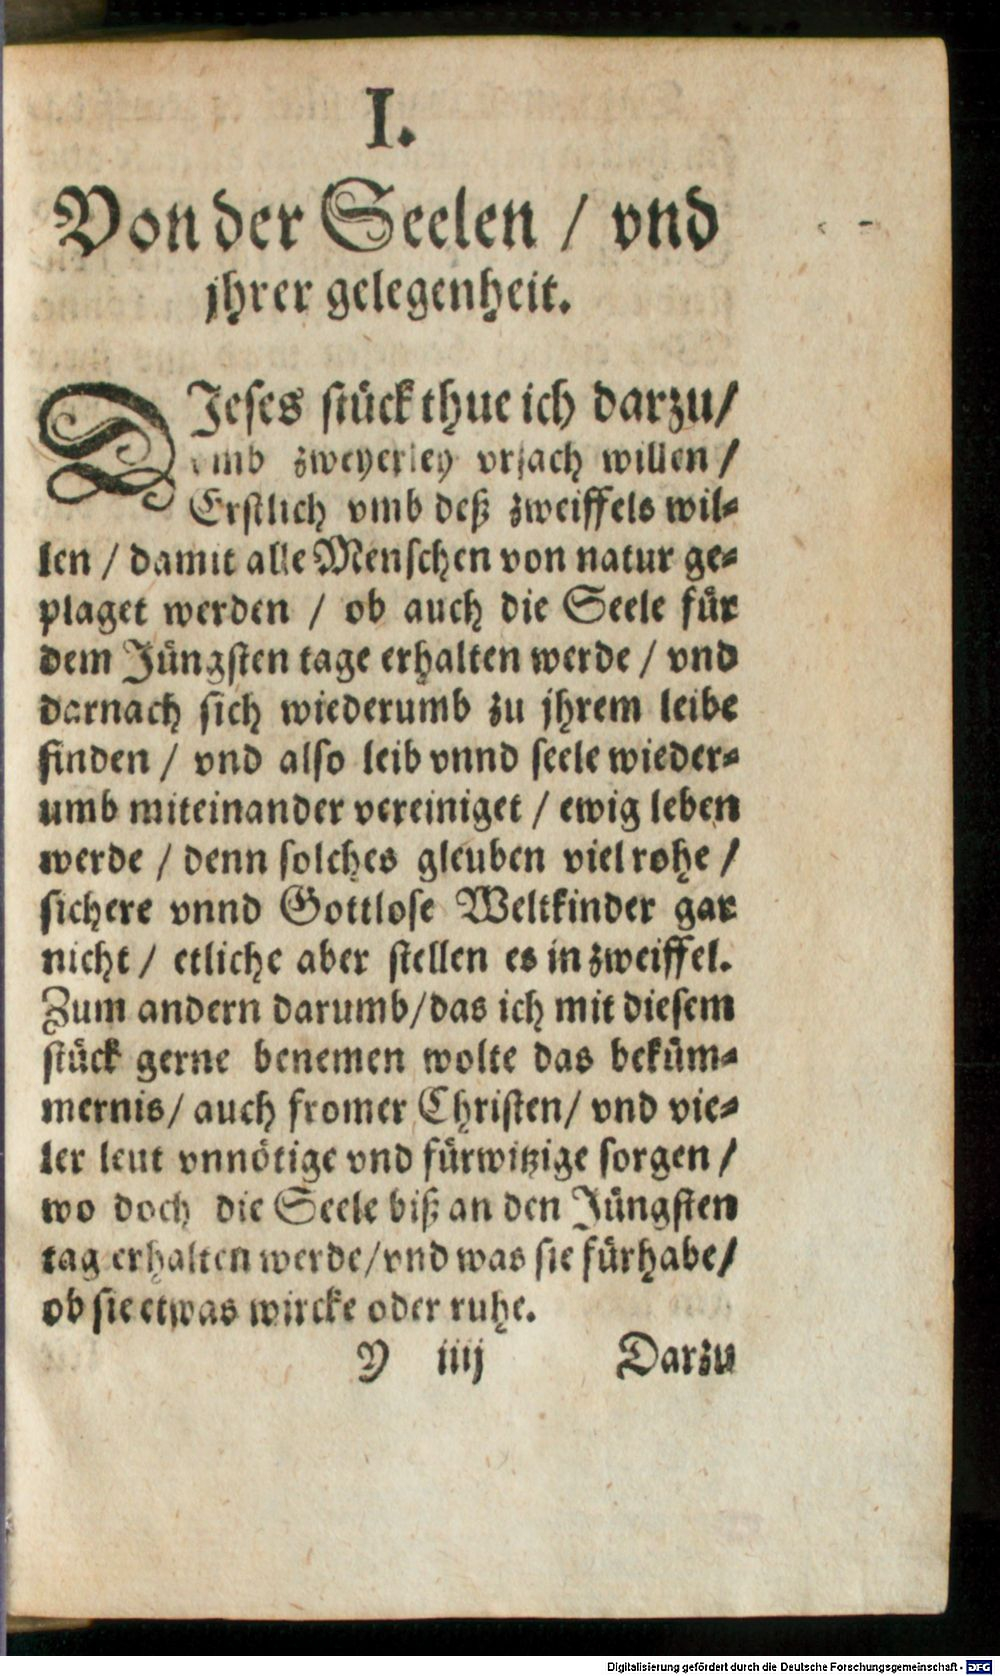 I.
Von der Seelen / vnd
jhrer gelegenheit.
DJeses stück thue ich darzu /
vmb zweyerley vrsach willen /
Erstlich vmb deß zweiffels wil-
len / damit alle Menschen von natur ge-
plaget werden / ob auch die Seele für
dem Jüngsten tage erhalten werde / vnd
darnach sich wiederumb zu jhrem leibe
finden / vnd also leib vnnd seele wieder-
umb miteinander vereiniget / ewig leben
werde / denn solches gleuben viel rohe /
sichere vnnd Gottlose Weltkinder gar
nicht / etliche aber stellen es in zweiffel.
Zum andern darumb / das ich mit diesem
stück gerne benemen wolte das beküm-
mernis / auch fromer Christen / vnd vie-
ler leut vnnötige vnd fürwitzige sorgen /
wo doch die Seele biß an den Jüngsten
tag erhalten werde / vnd was sie fürhabe /
ob sie etwas wircke oder ruhe.
Y iiij Darzu
Digitalisierung gefördert durch die Deutsche Forschungsgemeinschaft - DFG